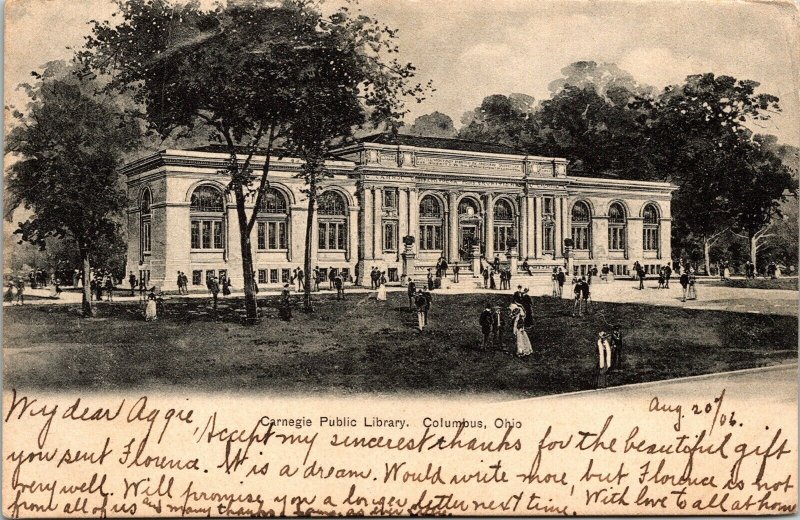 Carnegie Public Library. Columbus, Ohio
Aug. 20/06.
My dear Aggie, Accept my sincerest thanks for the beautiful gift
you sent Florena. It is a dream. Would write more, but Florena is not
very well. Will promise you a longer letter next time. With love to all at home
from all of us and many thanks, as ever